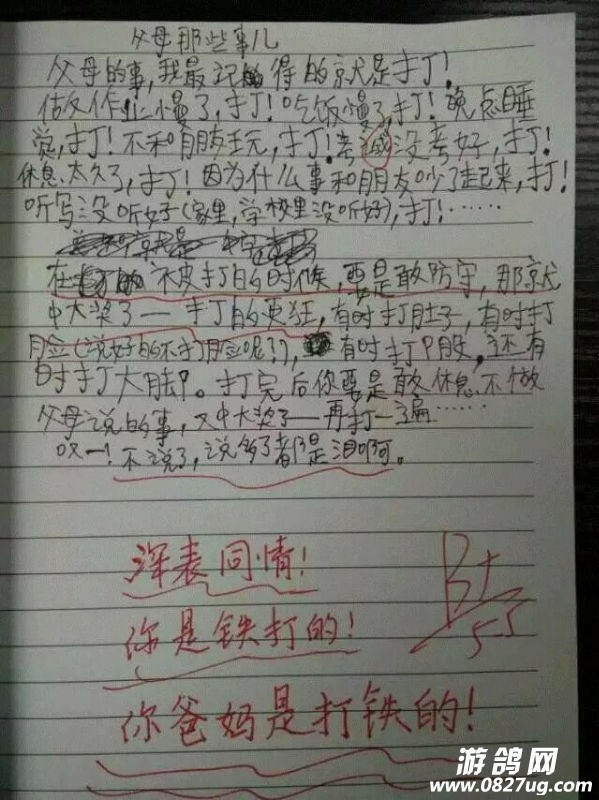 父母那些事儿
父母的事,我最记得的就是打!
做作业慢了,打!吃饭慢了,打!晚点睡
觉,打!不和朋友玩,打!考试没考好,打!
休息太久了,打!因为什么事和朋友吵了起来,打!
听写没听好(家里,学校里没听好),打!……
在 被打的时候,要是敢防守,那就
中大奖了——打的更狂,有时打肚子,有时打
脸(说好的不打脸呢??),有时打屁股,还有
时打大脚。打完后你要是敢休息不做
父母说的事,又中大奖了——再打一遍……
哎!不说了,说多了都是泪啊。
深表同情!
你是铁打的!
你爸妈是打铁的!
B+
5-5
游鸽网
www.0827ug.com